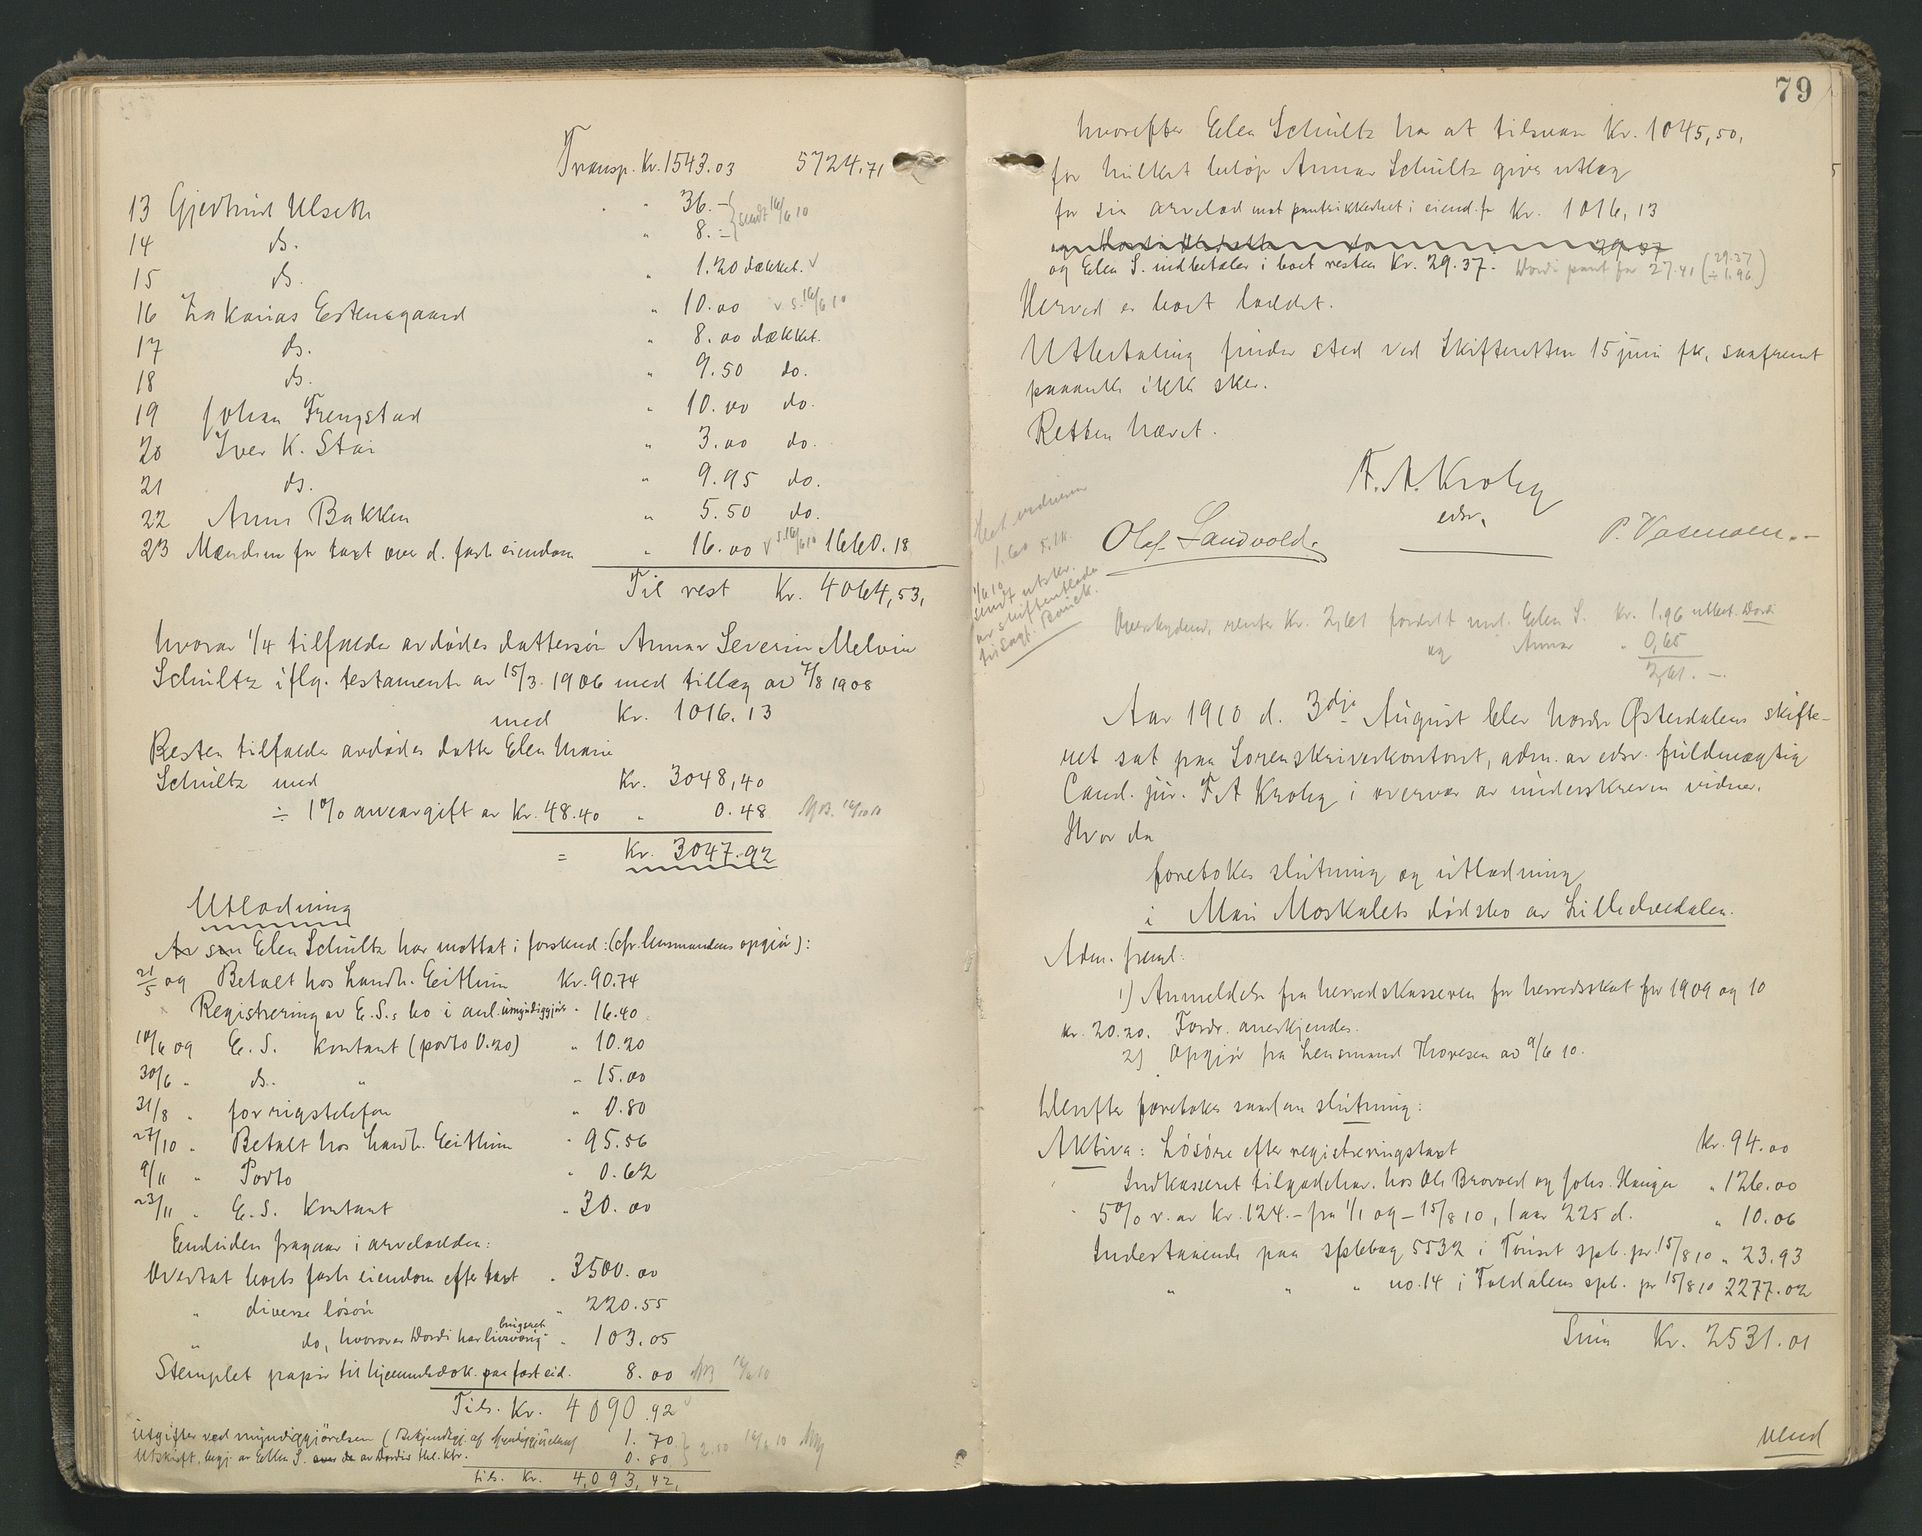 Transp. Kr. 1543.03 5724.71
13 Gjertrud Ulseth " 36.-
14 ds. " 8.- sendt 16/6 10
15 ds. " 1.20 dækket. v
16 Zakarias Estensgaard " 10.00 v s. 16/6 10
17 ds. " 8.00 dækket.
18 ds. " 9.50 do.
19 Johan Trengstad " 10.00 do.
20 Iver K. Stai " 3.00 do.
21 ds. " 9.95 do.
22 Anne Bakken " 5.50 do.
23 Mændene for taxt over d. faste eiendom " 16.00 v s. 16/6 10 1660.18
Til rest Kr. 4064,53,
hvorav 1/4 tilfalder avdødes dattersøn Annar Severin Melvin
Schultz iflg. testament av 15/3 1906 med tillæg av 7/8 1908
med Kr. 1016.13
Resten tilfalder avdødes datter Elen Marie
Schultz med Kr. 3048,40
÷ 1% arveavgift av Kr. 48.40 " 0.48
= Kr. 3047.92
Utlodning
Elen Schultz har mottat i forskud: (cfr. lensmandens opgjør):
21/5 09 Betalt hos Landh. Eithun Kr. 90.74
Registrering av E. S.s bo i anl. umyndiggjør. " 16.40
10/6 09 E. S. kontant (porto 0.20) " 10.20
30/6 " ds. " " 15.00
31/8 " for rigstelefon " 0.80
27/10 " Betalt hos Landh. Eithun " 95.56
9/11 " Porto " 0.62
23/11 " E. S. kontant " 30.00
Endviden fragaar i arvelodden:
Overtat boets faste eiendom efter taxt " 3500.00
" diverse løsøre " 220.55
" do, hvorover Dordi har livsvarig bruksret " 103.05
Stemplet papir til hjemmelsdok. paa fast eid. 8.00 16/6 10
Tils. Kr. 4090.92
Utgifter ved umyndiggjørelsen (Bekjendtgj. af Umyndiggjørelsen 1.70
Utskrift, begj. av Ellen S. av Dordis 0.80 2.50 16/6 10
tils. Kr. 4,093,42,
79
hvorefter Elen Schultz har at tilsvare Kr. 1045,50,
for hvilket beløp Annar Schultz gives utlæg
for sin arvelod mot pantsikkerhet i eiend. for Kr. 1016,13
29.37
og Elen S. indbetaler i boet resten Kr. 29.37. Dordi pant for 27.41 (29.37 ÷ 1.96)
Herved er boet sluttet.
Utbetaling finder sted ved Skifteretten 15 juni fk, saafremt
paaanke ikke sker.
Retten hævet.
F. A. Krohg
edsv.
Olaf Sandvold. P. Vosmoen.-
1.60
1/6 10
sendt utskr.
av skifteutlodn.
Overskydende renter Kr. 2,61 fordelt mel. Elen S. Kr. 1.96 utbet. Dordi
og Annar " 0,65
2,61.-
Aar 1910 d. 3dje August blev Nordre Østerdalens skifte-
ret sat paa Sorenskriverkontoret, adm. av edsv. fuldmægtig
Cand. jur. F. A Krohg i overvær av underskrevne vidner.
Hvor da
foretokes slutning og utlodning
i Mari Moskalets dødsbo av Lilleelvedalen.
Adm. freml:
1) Anmeldelse fra herredskassereren for herredsskat for 1909 og 10
kr. 20.20. Fordr. anerkjendes.
2) Opgjør fra Lensmand Thoresen av 9/6 10.
Derefter foretokes saadan slutning:
Aktiva: Løsøre efter registreringstaxt Kr. 94.00
Indkasseret tilgodehav. hos Ole Brovold og Johs. Hauger " 126.00
5% r. av Kr. 124.- fra 1/1 09 - 15/8 10, 1 aar 225 d. " 10.06
Indestaaende paa spbkbog 5532 i Tønset spb. pr. 15/8 10 " 23.93
" " " no. 14 i Foldalens spb. pr 15/8 10 2277.02
Sum Kr. 2531.01
Vend